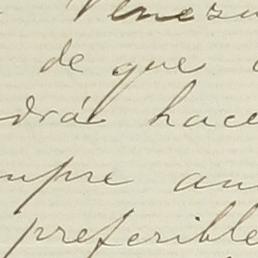 Venezu
de que
drá hace
mpre an
preferible